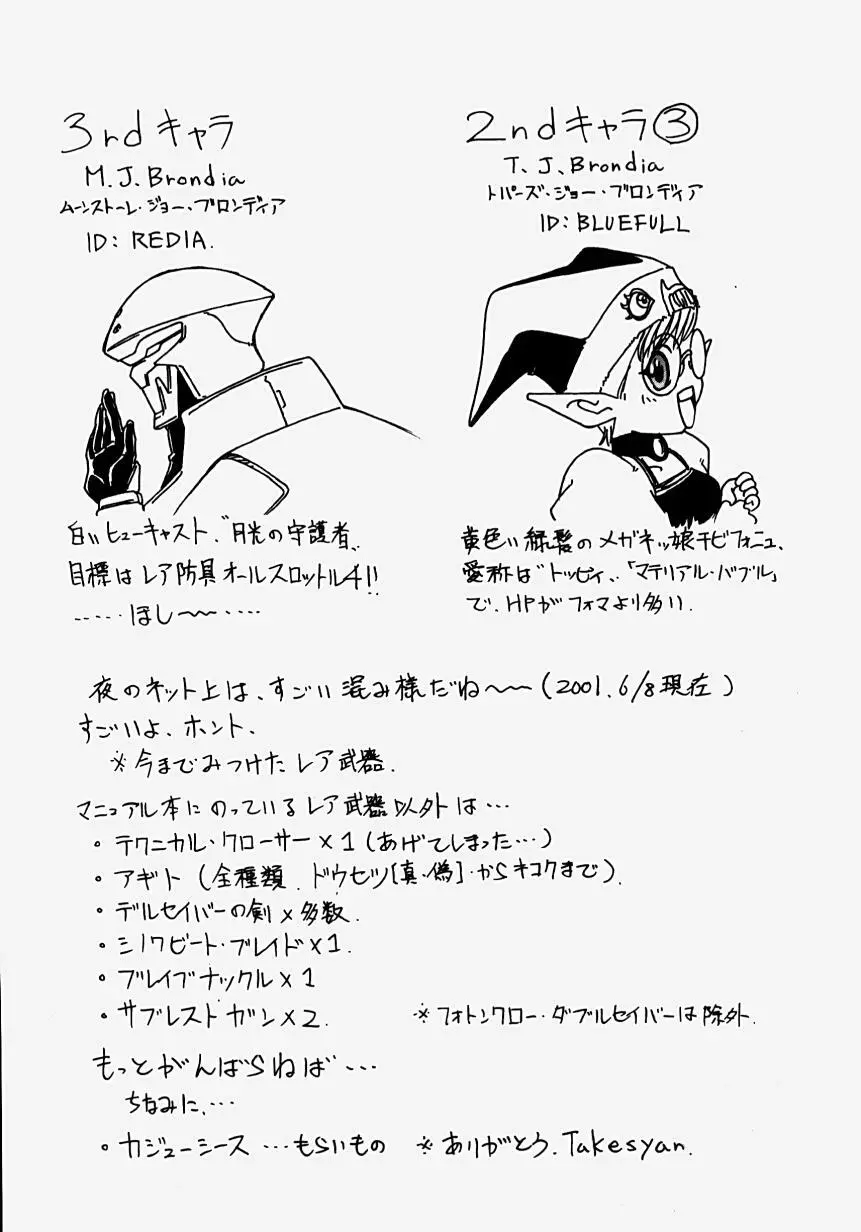 3rdキャラ
M.J.Brondia
ムーンストーレ・ジョー・ブロンディア
ID: REDIA.
白いヒューキャスト、"月光の守護者"
目標はレア防具オールスロットル4!!
……ほし〜〜……
2ndキャラ③
T.J.Brondia
トパーズ・ジョー・ブロンディア
ID: BLUEFULL
黄色い緑髪のメガネッ娘チビフォニュ、
愛称は"トッピィ"、「マテリアル・バブル」
で、HPがフォマより多い.
夜のネット上は、すごい混み様だね〜〜(2001.6/8現在)
すごいよ、ホント、
※今までみつけたレア武器.
マニュアル本にのっているレア武器以外は…
・テクニカル・クローサー×1(あげてしまった…)
・アギト(全種類.ドウセツ[真・偽]・からキコクまで).
・デルセイバーの剣×多数.
・シノワビート・ブレイド×1.
・ブレイブナックル×1
・サプレストガン×2.
※フォトンクロー・ダブルセイバーは除外.
もっとがんばらねば…
ちなみに、…
・カジューシース…もらいもの ※ありがとう.Takesyan.